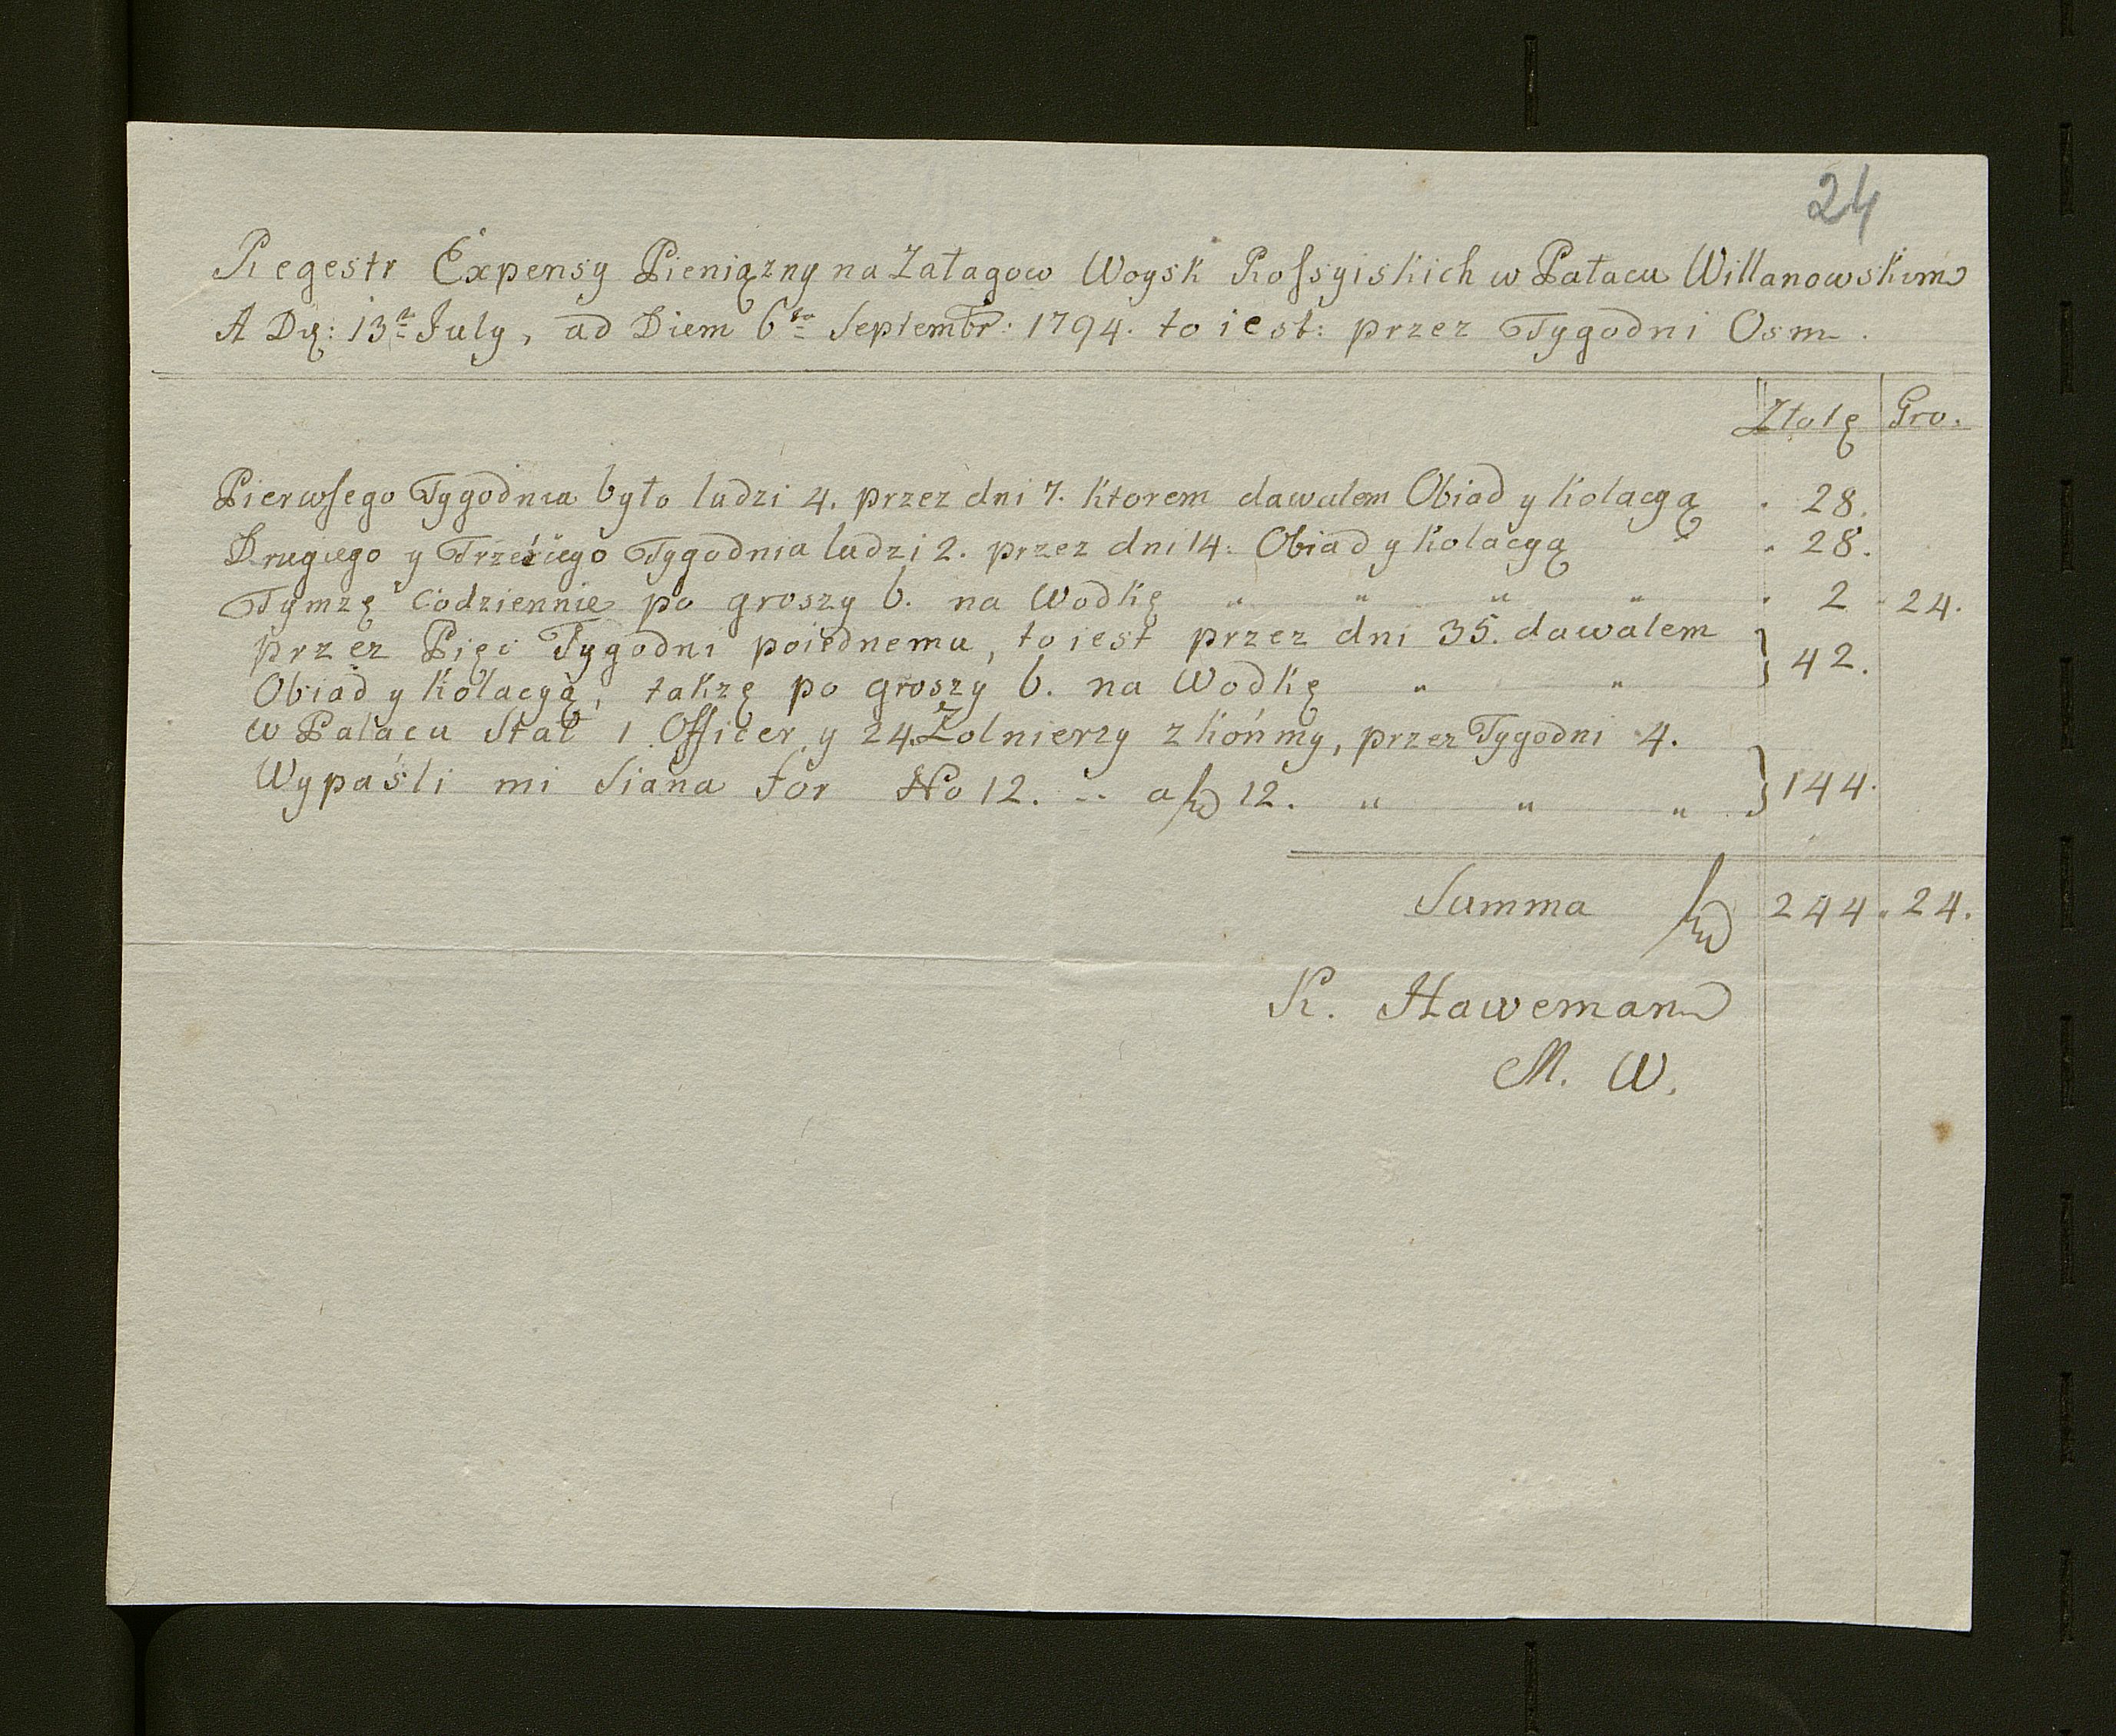 24
Regestr Expensy Pieniązny na Załagow Woysk Rossyiskich w Pałacu Willanowskim
A Dię: 13ª July, ad Diem 6ta Septembr: 1794. to iest: przez Tygodni Osm.
Złotę Gro.
Pierwsego Tygodnia było ludzi 4. przez dni 7. ktorem dawalem Obiad y kolacyą . 28.
Drugiego y Trzećiego Tygodnia ludzi 2. przez dni 14. Obiad y kolacyą " . 28.
Tymzę Codziennie po groszy 6. na Wodkę " " " " . 2 . 24.
przez Pięc Tygodni poiednemu, to iest przez dni 35. dawalem
Obiad y kolacyą, takzę po groszy 6. na Wodkę " " } 42.
w Palacu Stał 1 Officer y 24. Żolnierzy z końmy, przez Tygodni 4.
Wypaśli mi Siana For No 12. -- a 12. " " " } 144.
Summa 244 . 24.
K. Haweman
M. W.